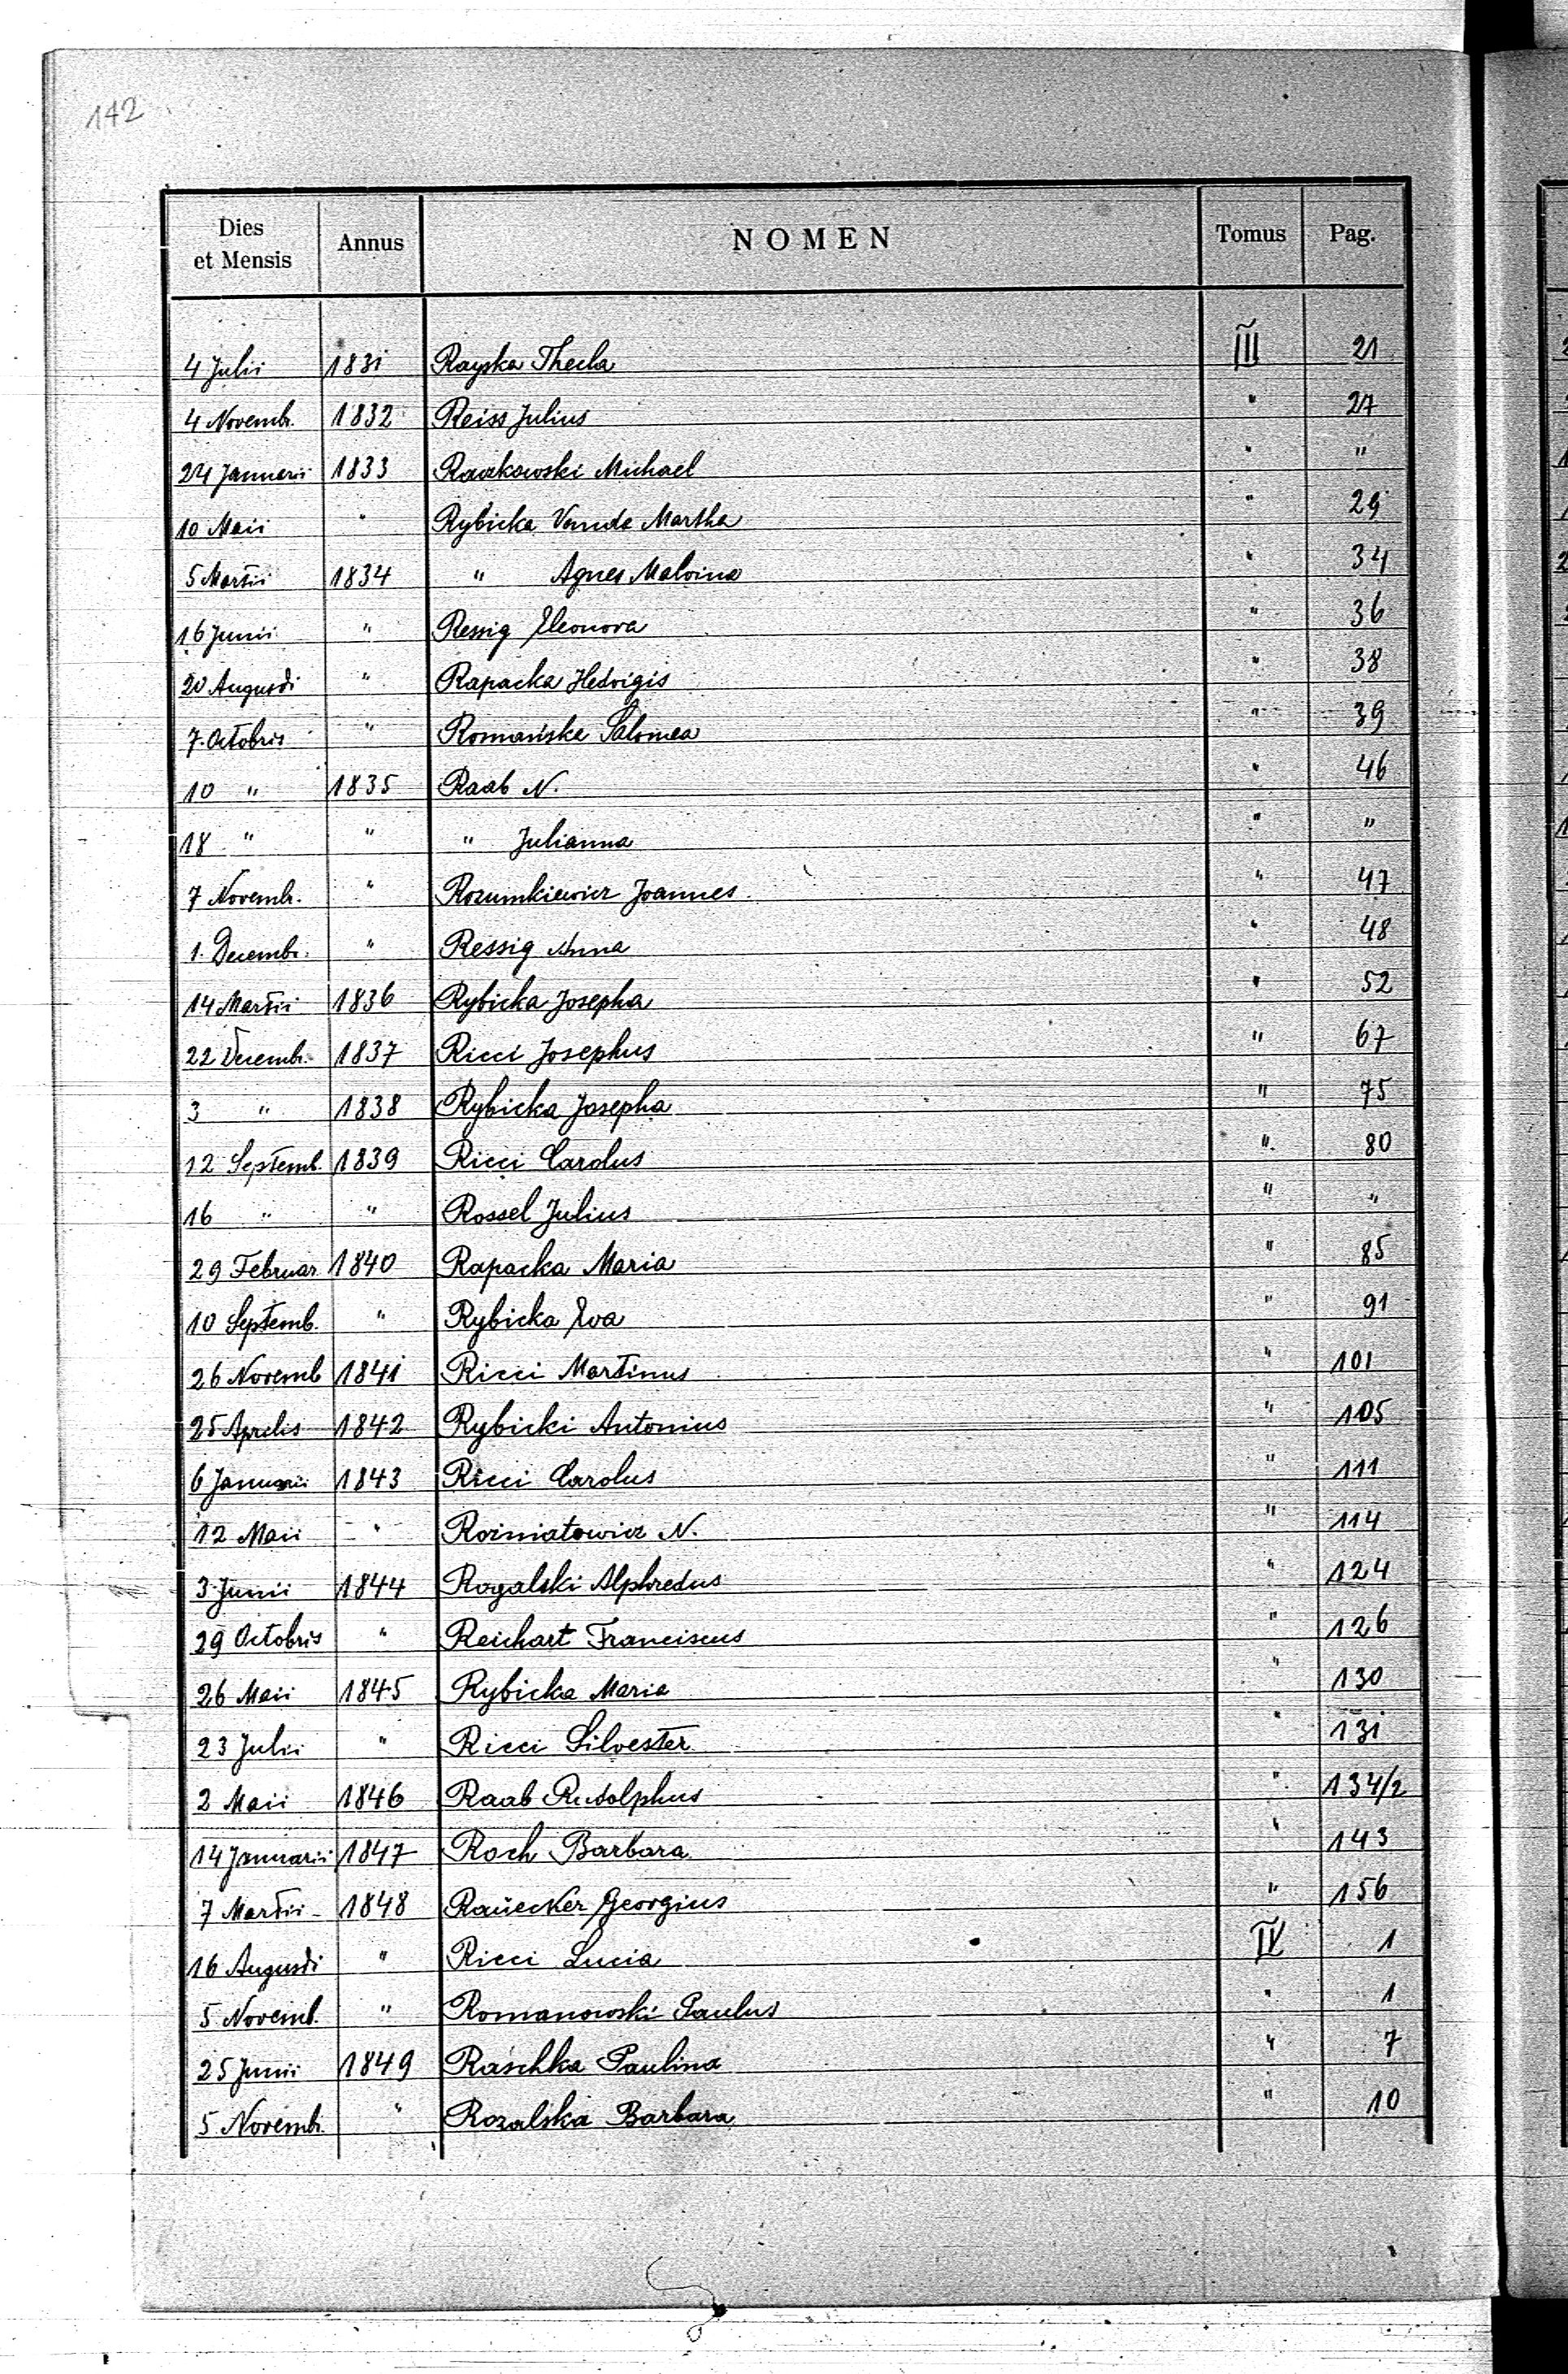 142
Dies et Mensis Annus NOMEN Tomus Pag.
4 Julii 1831 Rayska Thecla III 21
4 Novemb. 1832 Reiss Julius " 27
24 Januarii 1833 Raczkowski Michael " "
10 Maii " Rybicka Vanda Martha " 29
5 Martii 1834 " Agnes Malvina " 34
16 Junii " Ressig Eleonora " 36
20 Augusti " Rapacka Hedvigis " 38
7. Octobris " Romańska Salomea " 39
10 " 1835 Raab N. " 46
18 " " " Julianna " "
7 Novemb. " Rozumkiewicz Joannes " 47
1. Decemb. " Ressig Anna " 48
14 Martii 1836 Rybicka Josepha " 52
22 Decemb. 1837 Ricci Josephus " 67
3 " 1838 Rybicka Josepha " 75
12 Septemb. 1839 Ricci Carolus " 80
16 " " Rossel Julius " "
29 Februar 1840 Rapacka Maria " 85
10 Septemb. " Rybicka Eva " 91
26 Novemb 1841 Ricci Martinus " 101
25 Aprilis 1842 Rybicki Antonius " 105
6 Januarii 1843 Ricci Carolus " 111
12 Maii " Rożniatowicz N. " 114
3 Junii 1844 Rogalski Alphredus " 124
29 Octobris " Reichart Franciscus " 126
26 Maii 1845 Rybicka Maria " 130
23 Julii " Ricci Silvester " 131
2 Maii 1846 Raab Rudolphus " 134/2
14 Januarii 1847 Roch Barbara " 143
7 Martii 1848 Rauecker Georgius " 156
16 Augusti " Ricci Lucia IV 1
5 Novemb. " Romanowski Paulus " 1
25 Junii 1849 Raschka Paulina " 7
5 Novemb. " Rozalska Barbara " 10